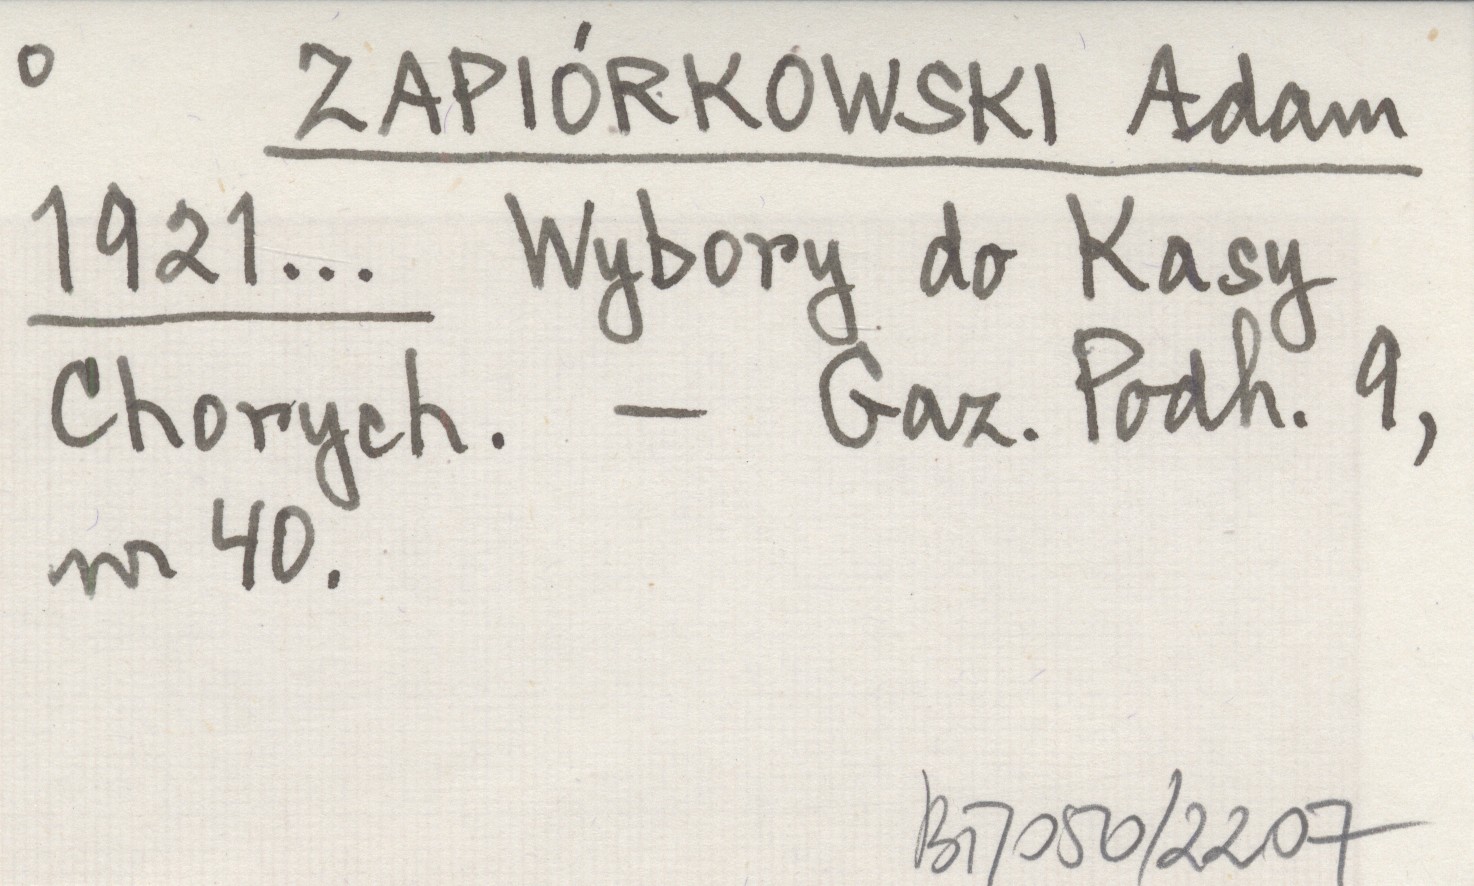 o ZAPIÓRKOWSKI Adam
1921... Wybory do Kasy
Chorych. — Gaz. Podh. 9,
nr 40.
BT/050/2207